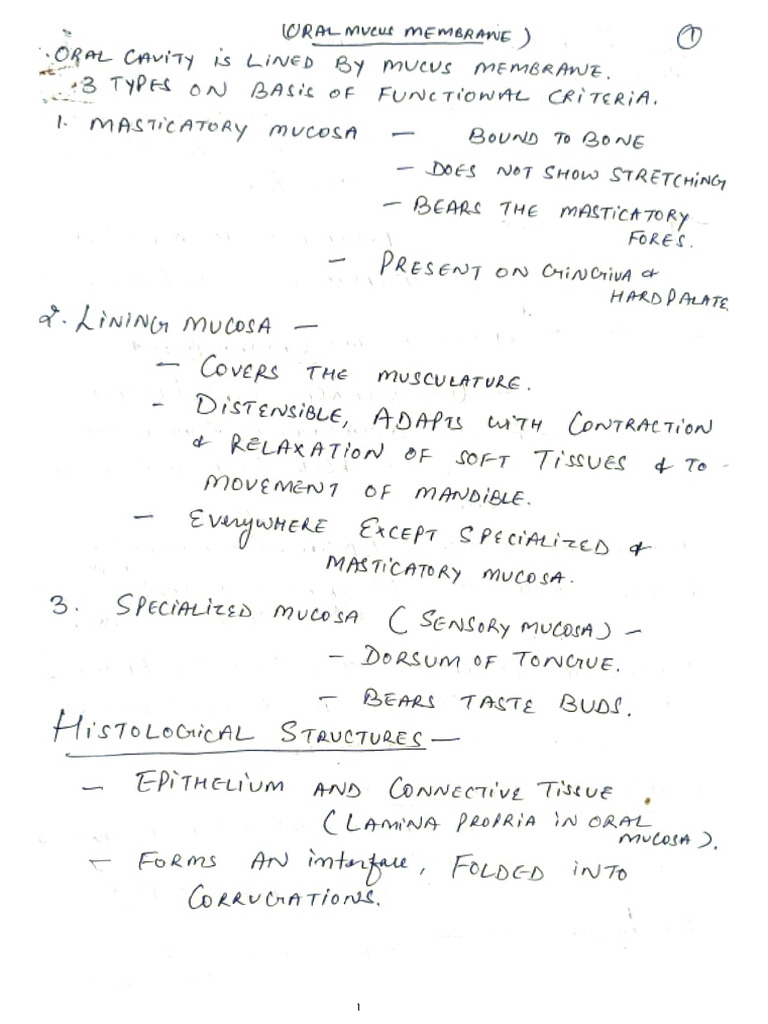 (ORAL MUCUS MEMBRANE) 1
. ORAL CAVITY iS LINED BY MUCUS MEMBRANE.
. 3 TYPES ON BASIS OF FUNCTIONAL CRITERIA.
1. MASTICATORY MUCOSA — BOUND TO BONE
— DOES NOT SHOW STRETCHING
— BEARS THE MASTICATORY
FORES.
— PRESENT ON GINGIVA &
HARD PALATE
2. LINING MUCOSA —
— COVERS THE MUSCULATURE.
- DISTENSIBLE, ADAPTS WITH CONTRACTION
& RELAXATION OF SOFT TISSUES & TO -
MOVEMENT OF MANDIBLE.
— EVERYWHERE EXCEPT SPECIALIZED &
MASTICATORY MUCOSA.
3. SPECIALIZED MUCOSA (SENSORY MUCOSA) —
— DORSUM OF TONGUE.
— BEARS TASTE BUDS.
HISTOLOGICAL STRUCTURES —
— EPITHELIUM AND CONNECTIVE TISSUE
(LAMINA PROPRIA IN ORAL
MUCOSA).
— FORMS AN interface, FOLDED INTO
CORRUGATIONS.
1